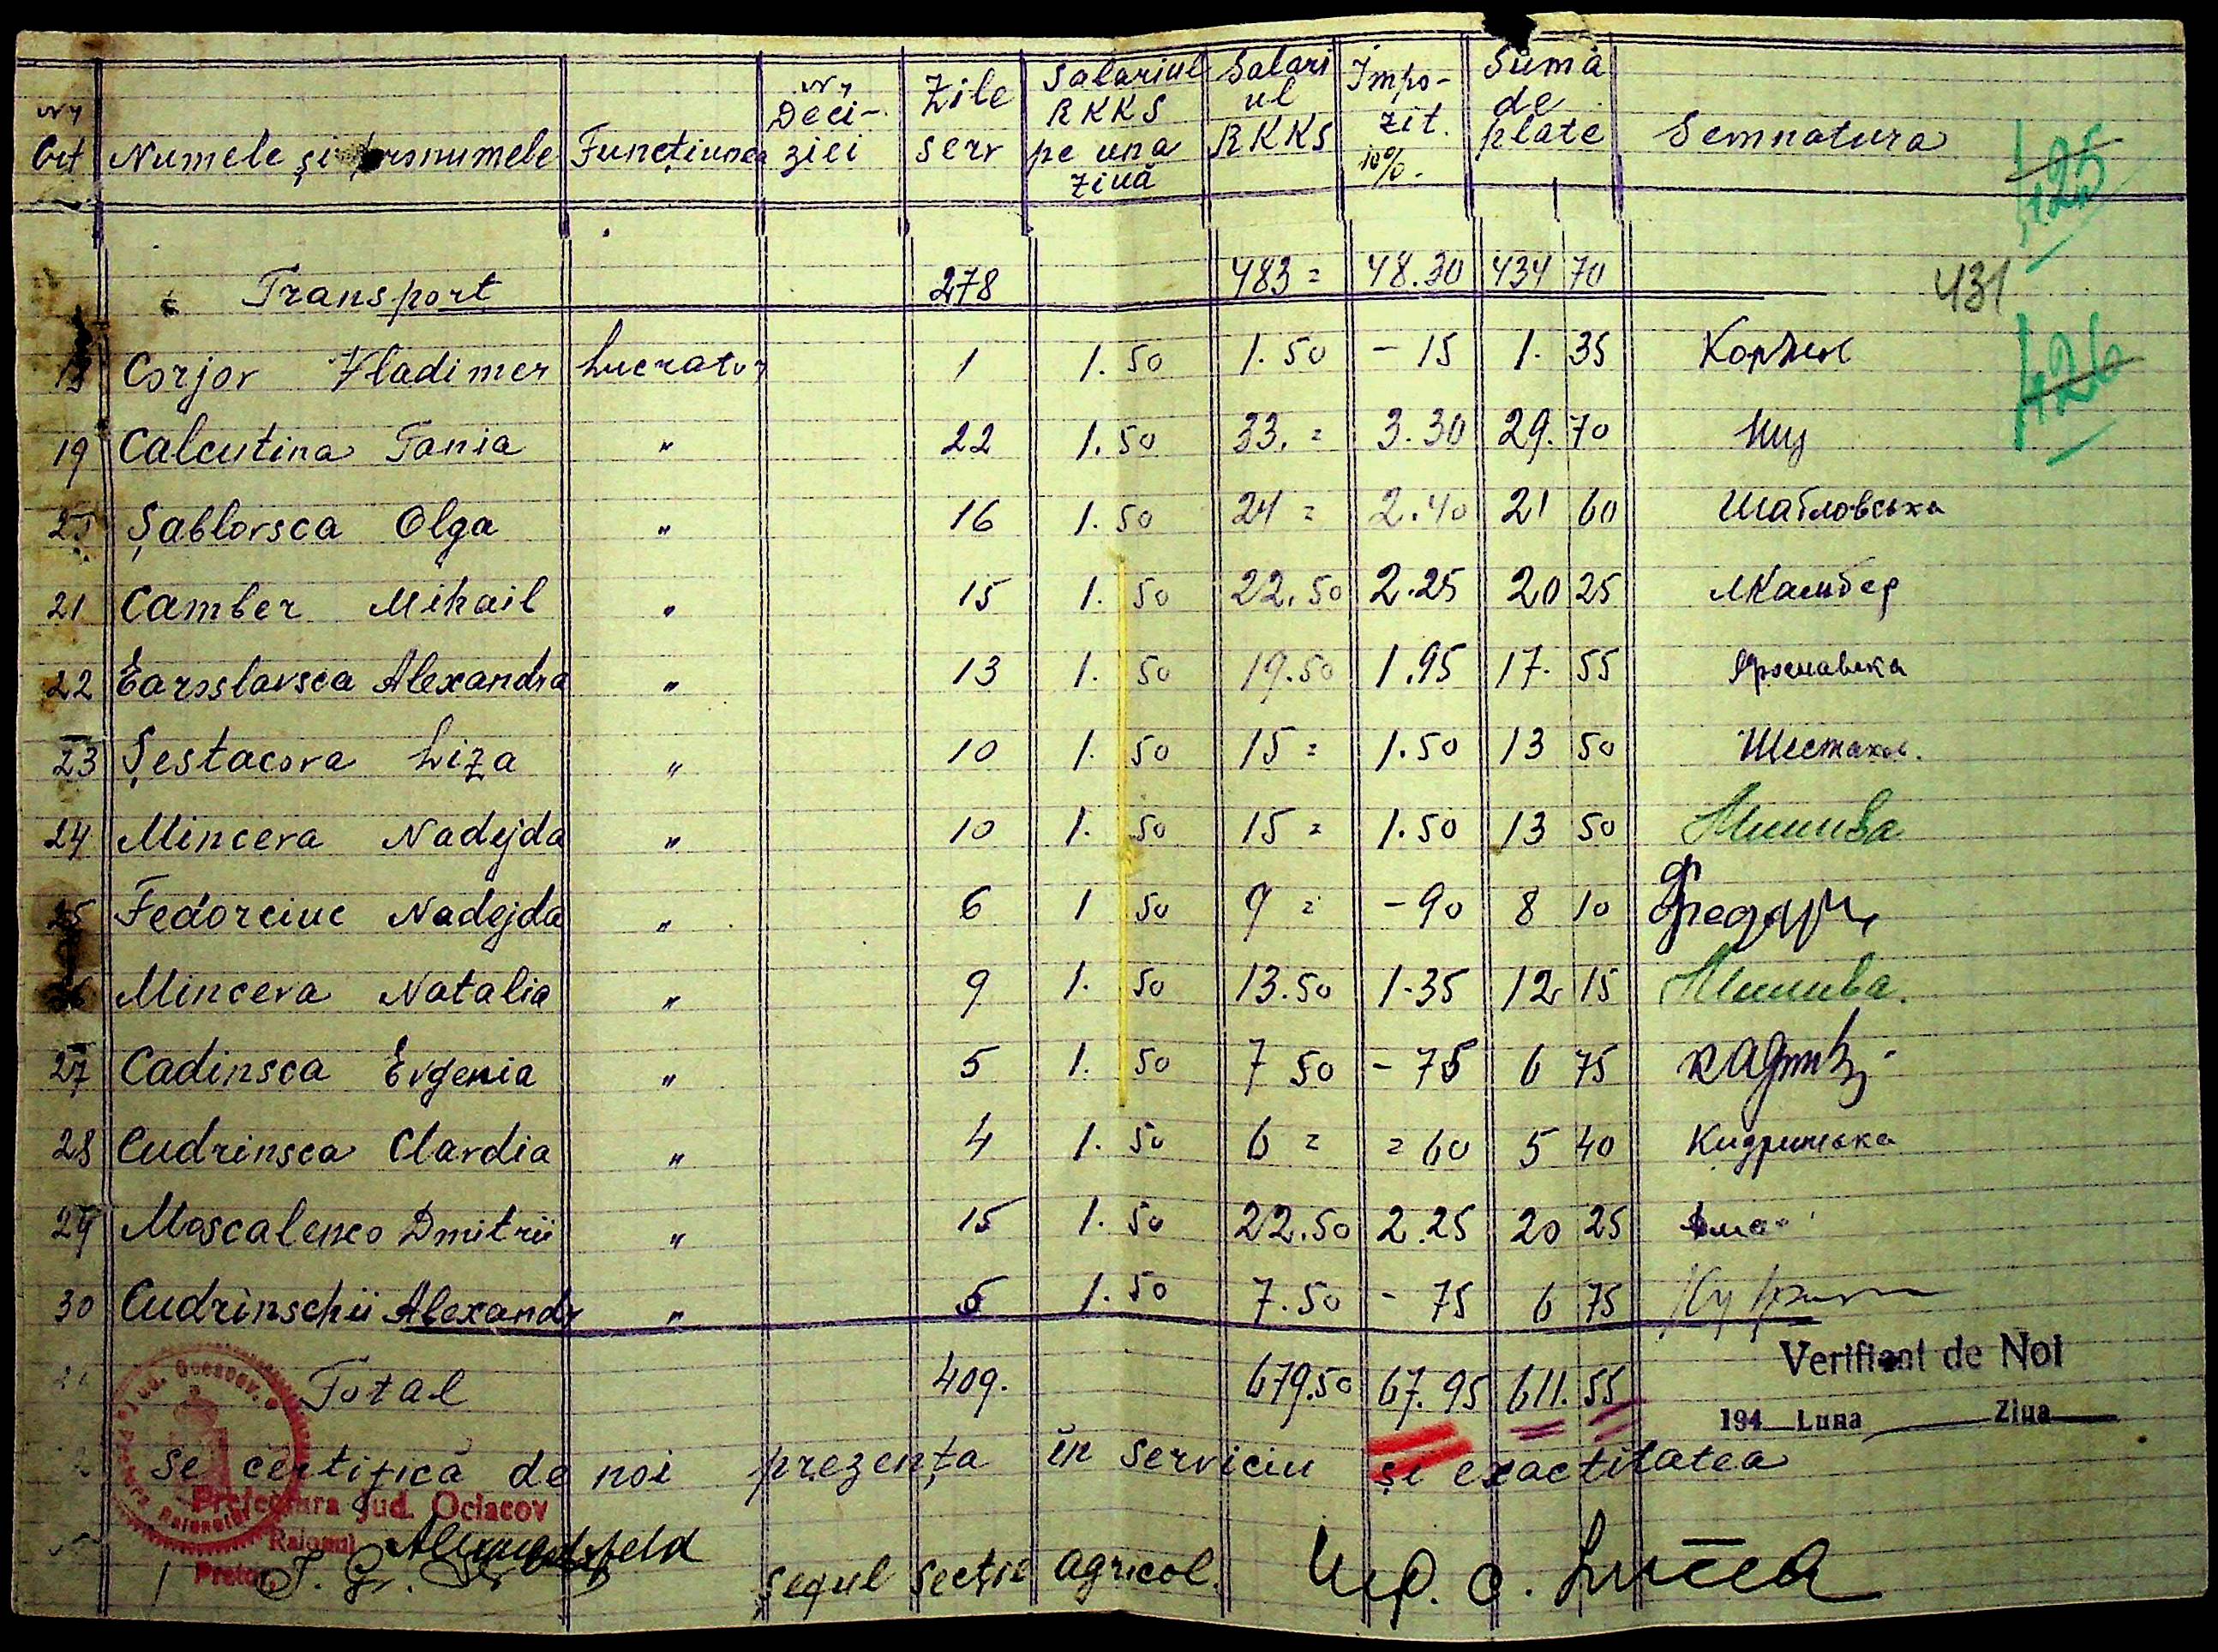 Nr Crt Numele și pronumele Funcțiunea Nr Deciziei Zile serv Salariul RKKS pe una ziuă Salariul RKKS Impozit. 10%. Sumă de plate Semnatura
425
Transport 278 483 = 48.30 434 70
431
18 Corjov Vladimer Lucrator 1 1.50 1.50 - 15 1. 35
426
19 Calcutina Tania " 22 1.50 33. = 3.30 29.70
Șablovsca Olga " 16 1.50 24 = 2.40 21 60 Шабловська
21 Camber Mihail " 15 1. 50 22.50 2.25 20 25 МКамбер
22 Earoslavsca Alexandra " 13 1. 50 19.50 1.95 17. 55 Ярославска
23 Șestacova Liza " 10 1. 50 15 = 1.50 13 50 Шестаков.
24 Minceva Nadejda " 10 1. 50 15 = 1.50 13 50
25 Fedorciuc Nadejda " 6 1 50 9 = - 90 8 10
26 Minceva Natalia " 9 1. 50 13.50 1.35 12 15
27 Cadinsca Evgenia " 5 1. 50 7 50 - 75 6 75
28 Cudrinsca Clavdia " 4 1. 50 6 = = 60 5 40 Кидринська
29 Moscalenco Dmitrii " 15 1. 50 22.50 2.25 20 25
30 Cudrinschii Alexandr " 5 1.50 7.50 - 75 6 75
Verificat de Noi
Total 409. 679.50 67.95 611.55
194 Luna Ziua
Se certifică de noi prezența în serviciu și exactitatea
Prefectura Jud. Ociacov
Raionul
Pretor,
Șeful Secție agricol.